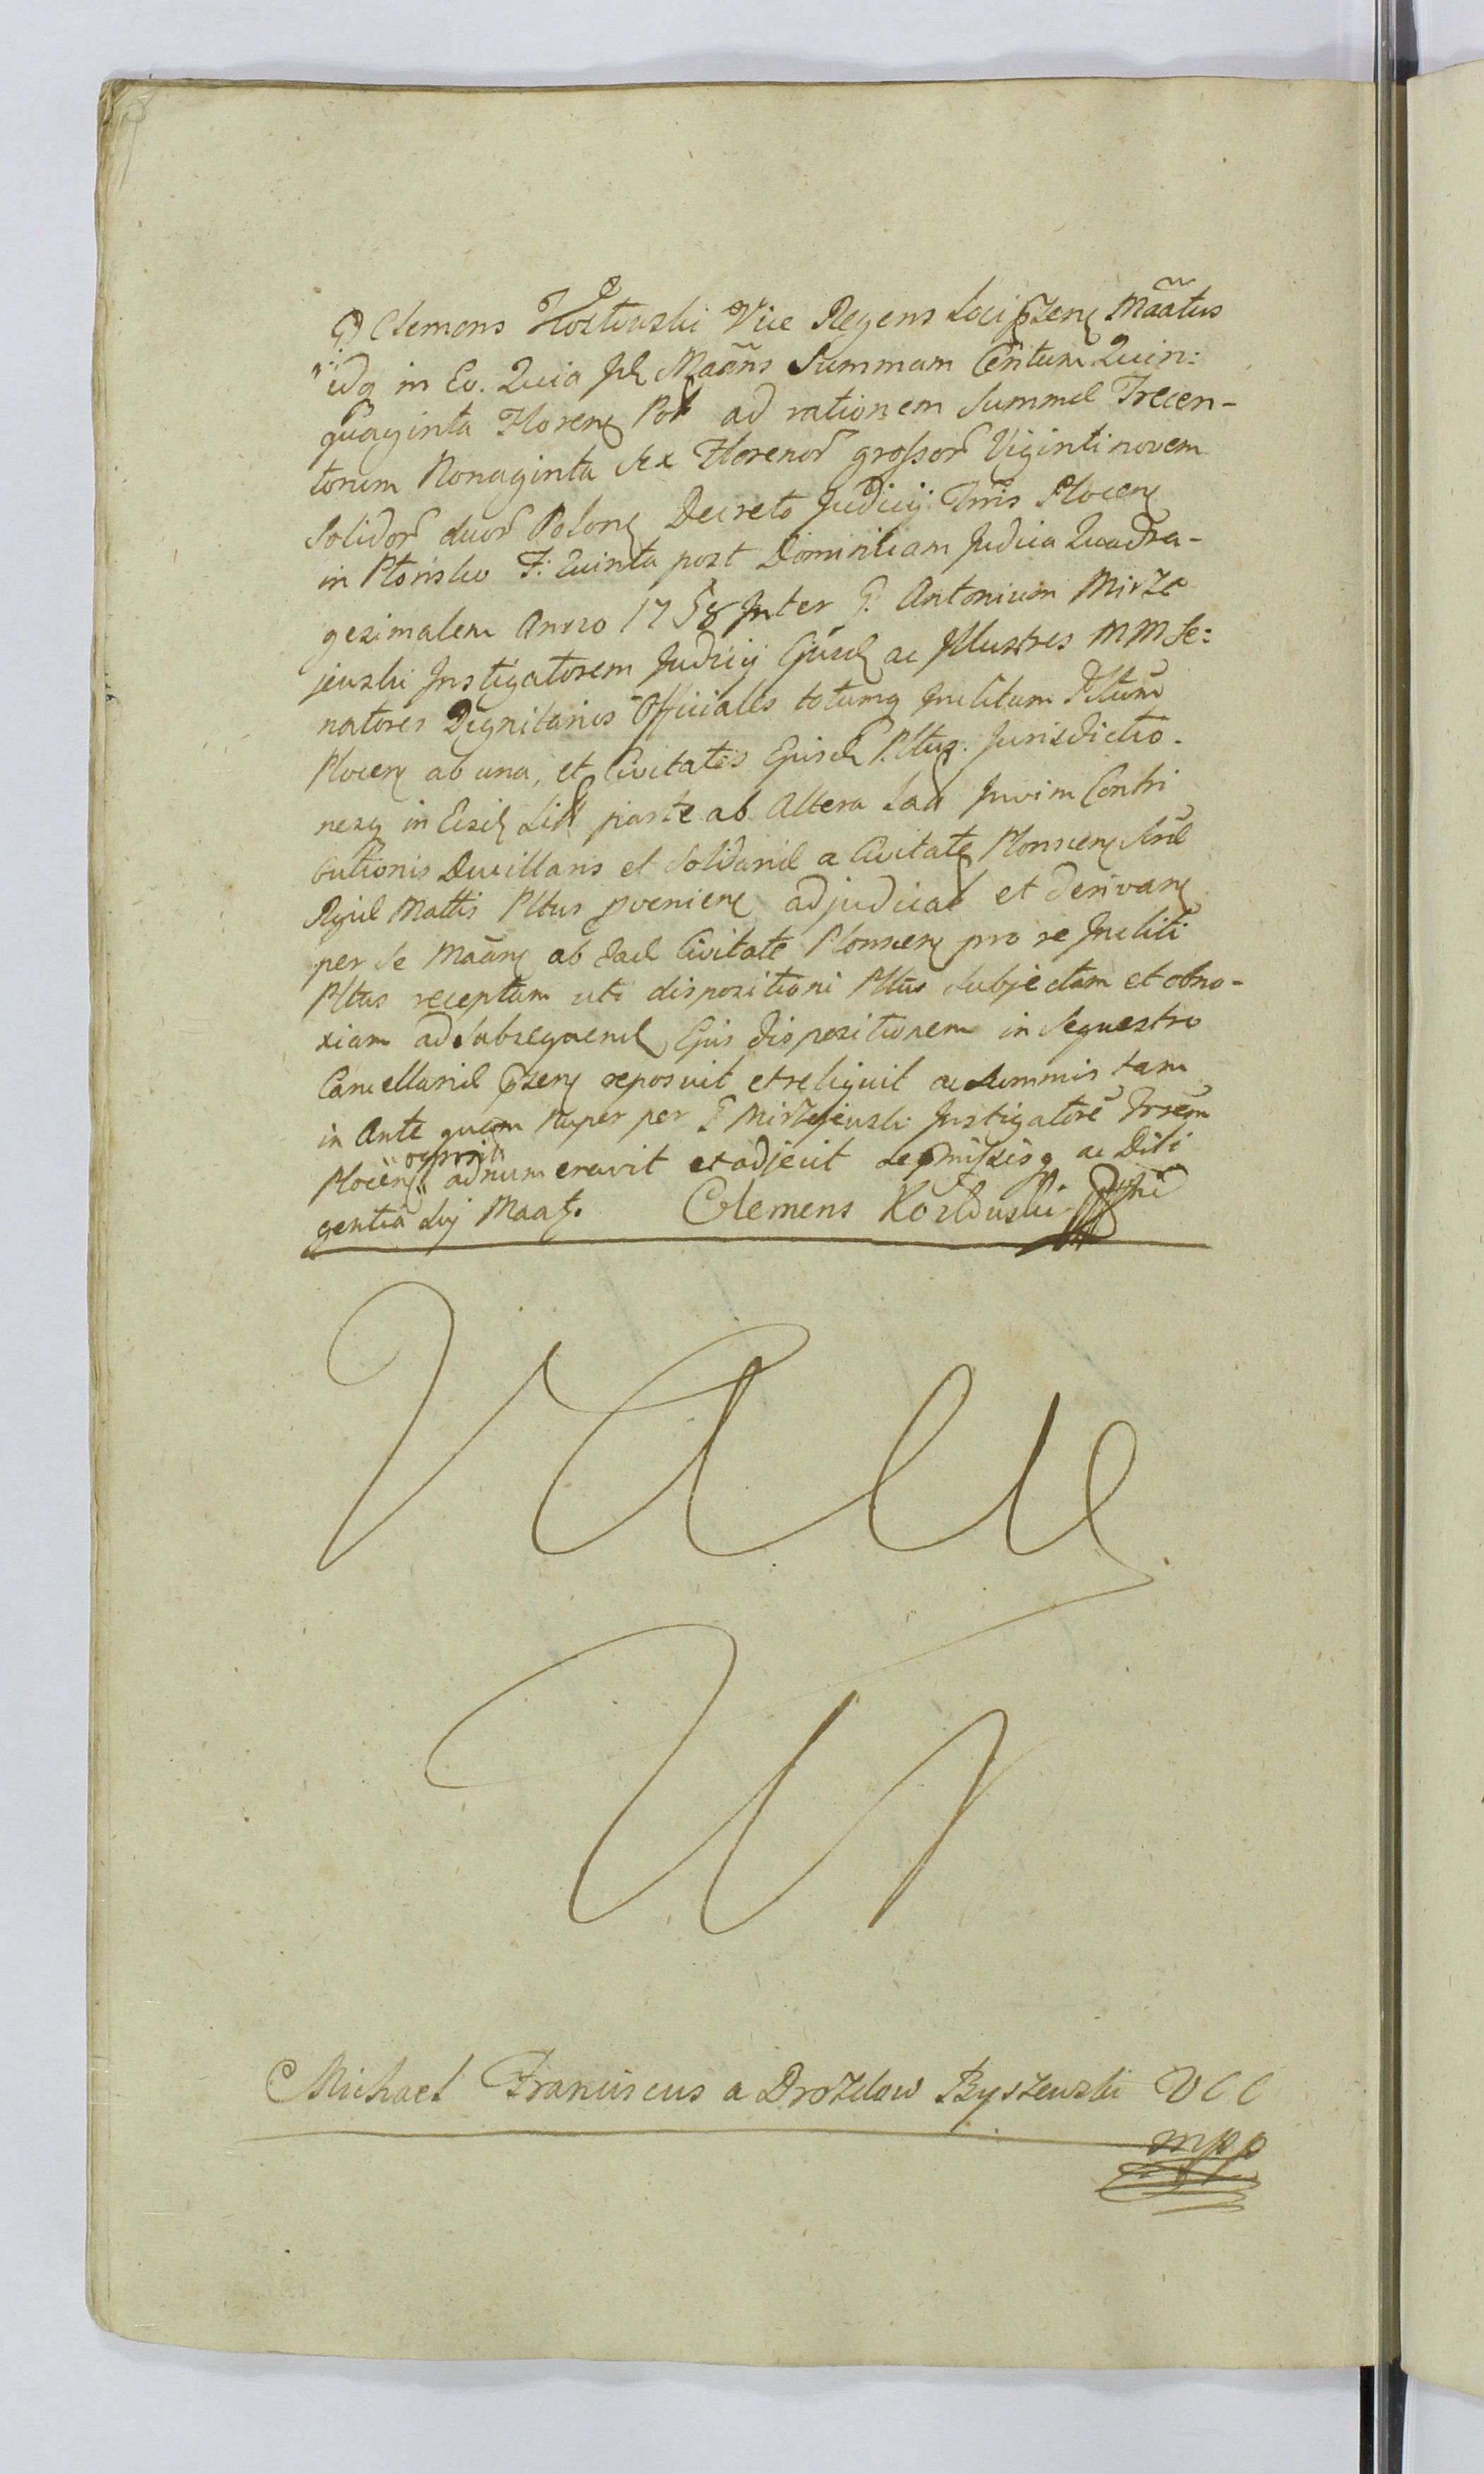 G Clemens Kozłowski Vice Regens Loci pszen Maatus
idq in Eo. Quia Maans Summam Centum Quin:
quaginta Floren Pol ad rationem Summæ Trecen-
torum Nonaginta Sex Florenor grossor Viginti novem
Solidor duor Polon Decreto Judicij Trris Plocen
in Płońsko F. Quinta post Dominicam Judica Quadra-
gesimalem Anno 1758 Inter G. Antonium Mirze
jewski Instigatorem Judicij Ejusd ac Illustres MM Se:
natores Dignitarios Officiales totumq Inclitum Pltum
Plocen ab una, et Civitates Ejusd Pltus. Jurisdictio-
nesq in Eisd parte ab Altera Lat in vim Contri
butionis Ducillaris et Solidaris a Civitate Plonscen
Mattis Pltus pvenien adjudicat et derivan
per Se Maan ab Ead Civitate Plonscen pro re Incliti
Pltus receptam uti dispositioni Pltus Subjectam et obno-
xiam ad Subsequend Ejus dispositionem in Sequestro
Cancellariæ pszen reposuit et reliquit ac Summis tam
in Ante quam Nuper per G Mirzejewski Instigatorē Trsem
Plocens adnumeravit et adjecit ac Dili
gentia Maat. Clemens Kozłowski
Vacu
um
Michael Franciscus a Drozdow Byszewski VCC
mpp